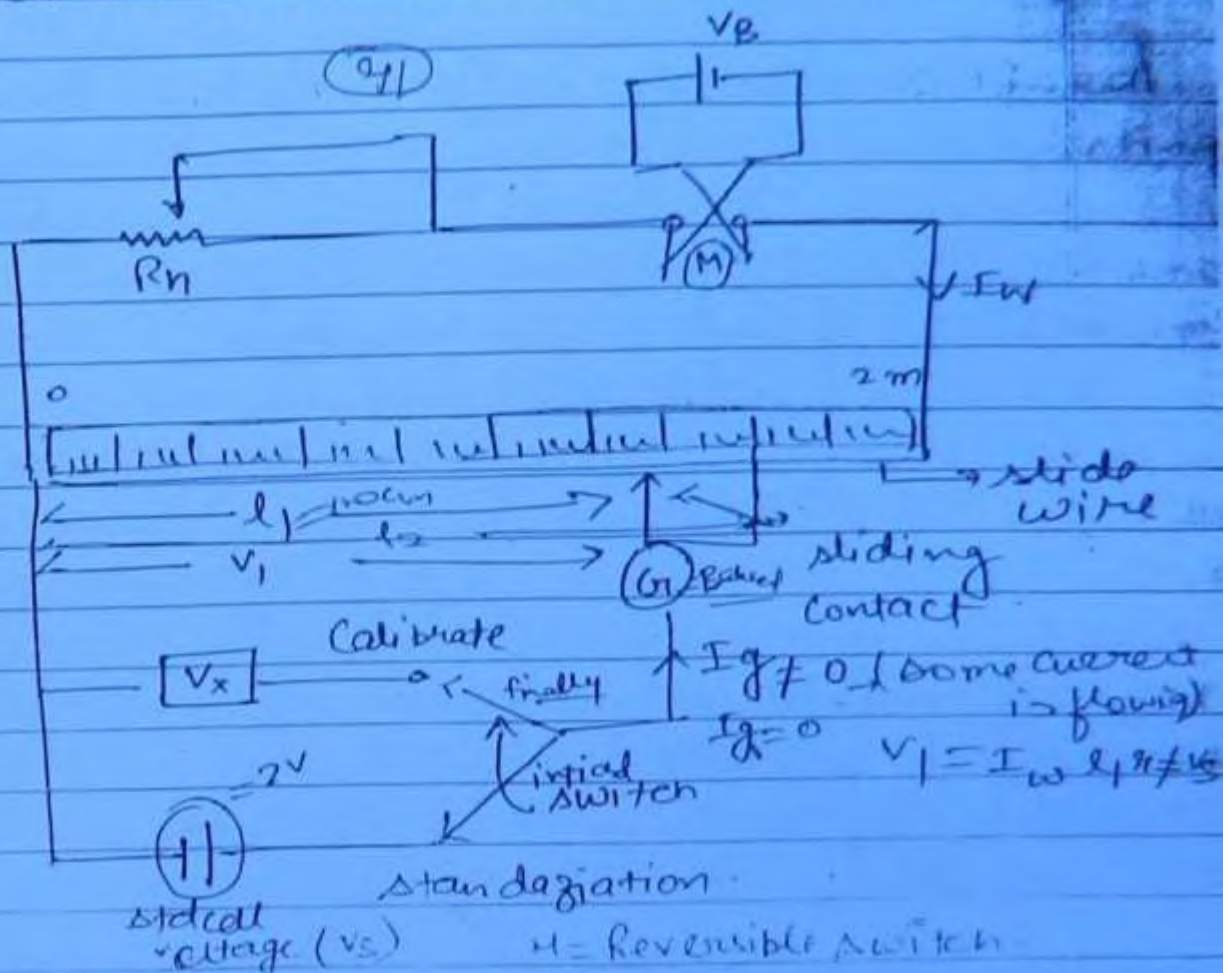 VB
Rh
M
Iw
0
2 m
l1
l2
V1
slide
wire
G
sliding
contact
Calibrate
Vx
finally
Ig ≠ 0 (some current
is flowing)
Ig = 0
V1 = Iw l1 r ≠ Vs
intial
switch
= 2V
Standaziation
stdcell
voltage (Vs)
M = Reversible switch